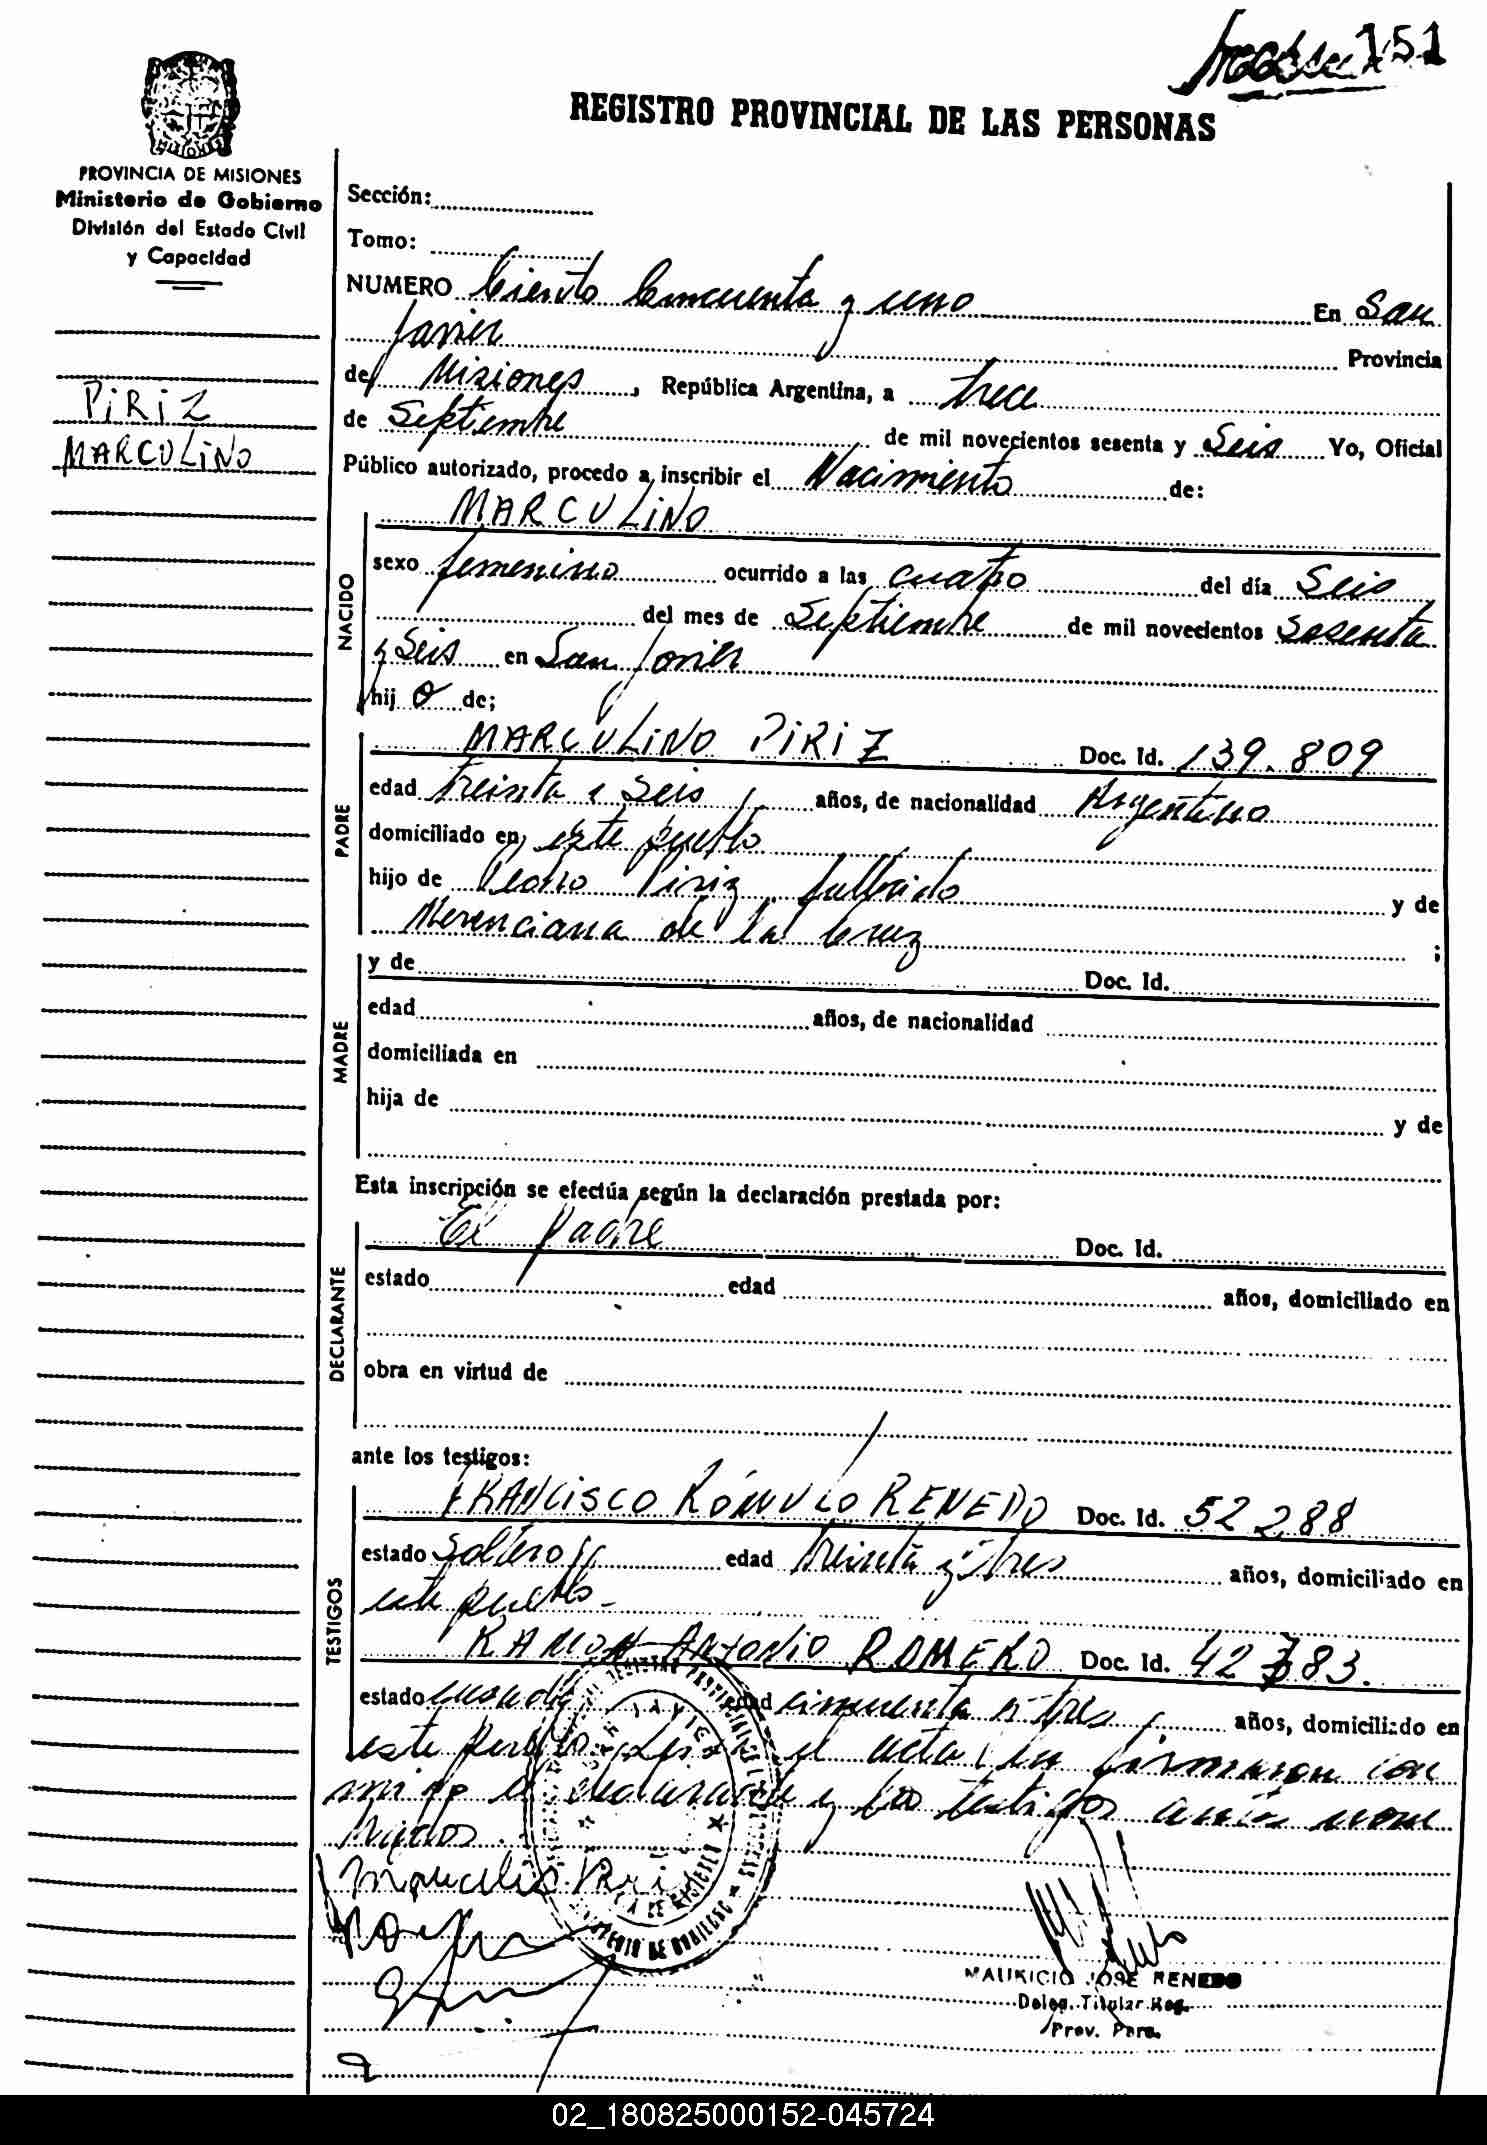 151
REGISTRO PROVINCIAL DE LAS PERSONAS
PROVINCIA DE MISIONES
Ministerio de Gobierno
División del Estado Civil
y Capacidad
PiRiZ
MARCULiNO
Sección:
Tomo:
NUMERO Ciento Cincuenta y uno En San
Javier Provincia
de Misiones, República Argentina, a trece
de Septiembre de mil novecientos sesenta y Seis Yo, Oficial
Público autorizado, procedo a inscribir el Nacimiento de:
NACIDO
MARCULiNO
sexo femenino ocurrido a las cuatro del día Seis
del mes de Septiembre de mil novecientos Sesenta
y Seis en San Javier
hij o de;
PADRE
MARCULiNO PiRiZ Doc. Id. 139.809
edad treinta i Seis años, de nacionalidad Argentino
domiciliado en este pueblo
hijo de Pedro Piriz fallecido y de
Merenciana de la Cruz ;
MADRE
y de Doc. Id.
edad años, de nacionalidad
domiciliada en
hija de y de
Esta inscripción se efectúa según la declaración prestada por:
DECLARANTE
El Padre Doc. Id.
estado edad años, domiciliado en
obra en virtud de
ante los testigos:
TESTIGOS
FRANCISCO RÓMULO RENEDO Doc. Id. 52288
estado Soltero edad treinta y tres años, domiciliado en
este pueblo -
RAMON ANTONIO ROMERO Doc. Id. 42383.
estado casado edad cincuenta y tres años, domiciliado en
este pueblo el acta la firmaron con
migo el declarante y los testigos antes nom
brados.
SAN JAVIER
MAURICIO JOSE RENEDO
Deleg. Titular Reg.
Prov. Pers.
02_180825000152-045724